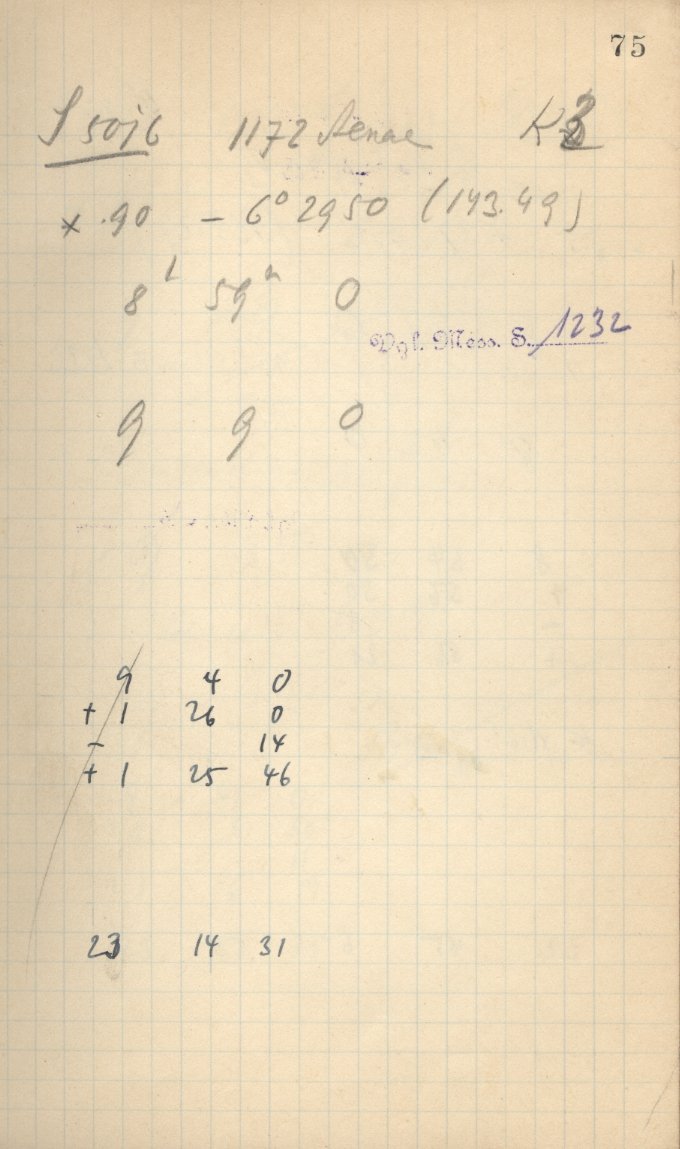 75
S 5016 1172 Aenae K
× .90 – 6° 2950 (143.49)
8 h 59 m 0
Vgl. Mess. S. 1232
9 9 0
9 4 0
+ 1 26 0
– 14
+ 1 25 46
23 14 31